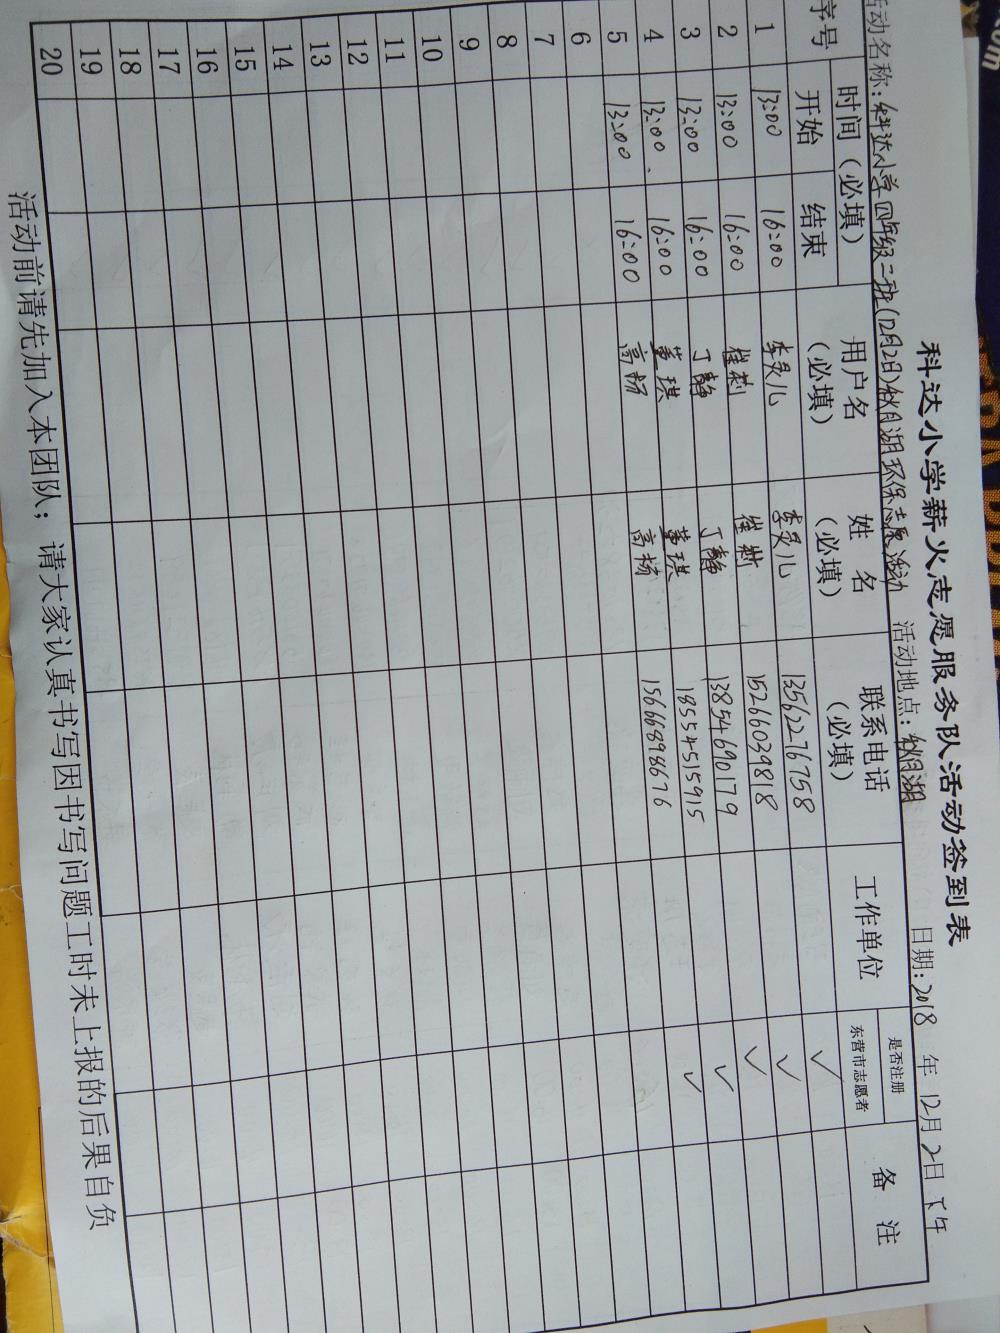 科达小学薪火志愿服务队活动签到表
活动名称：科达小学四年级二班(12月2日)秋月湖环保志愿活动 活动地点：秋月湖 日期：2018年12月2日下午
序号 时间（必填） 用户名（必填） 姓 名（必填） 联系电话（必填） 工作单位 是否注册东营市志愿者 备 注
开始 结束
1 13:00 16:00 李灵儿 李灵儿 13562276758 ✓
2 13:00 16:00 崔莉 崔莉 15266039818 ✓
3 13:00 16:00 丁静 丁静 13854690179 ✓
4 13:00 16:00 董琪 董琪 18554515915 ✓
5 13:00 16:00 高杨 高杨 15666898676 ✓
6
7
8
9
10
11
12
13
14
15
16
17
18
19
20
活动前请先加入本团队； 请大家认真书写因书写问题工时未上报的后果自负